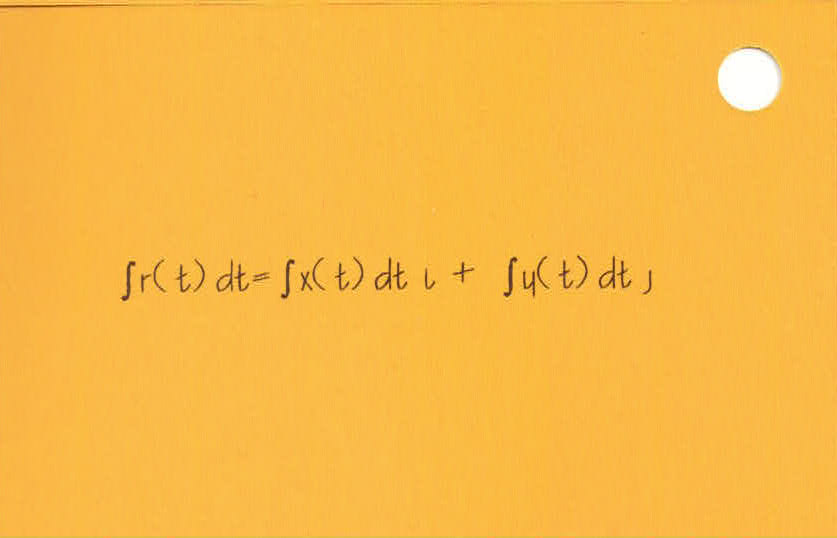 ∫r(t) dt= ∫x(t) dt ı + ∫y(t) dt ȷ